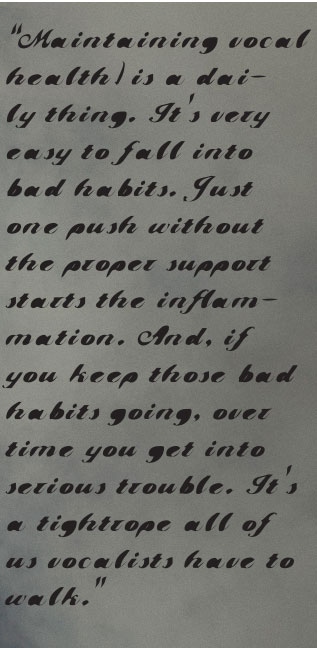 "Maintaining vocal
health) is a dai-
ly thing. It's very
easy to fall into
bad habits. Just
one push without
the proper support
starts the inflam-
mation. And, if
you keep those bad
habits going, over
time you get into
serious trouble. It's
a tightrope all of
us vocalists have to
walk."